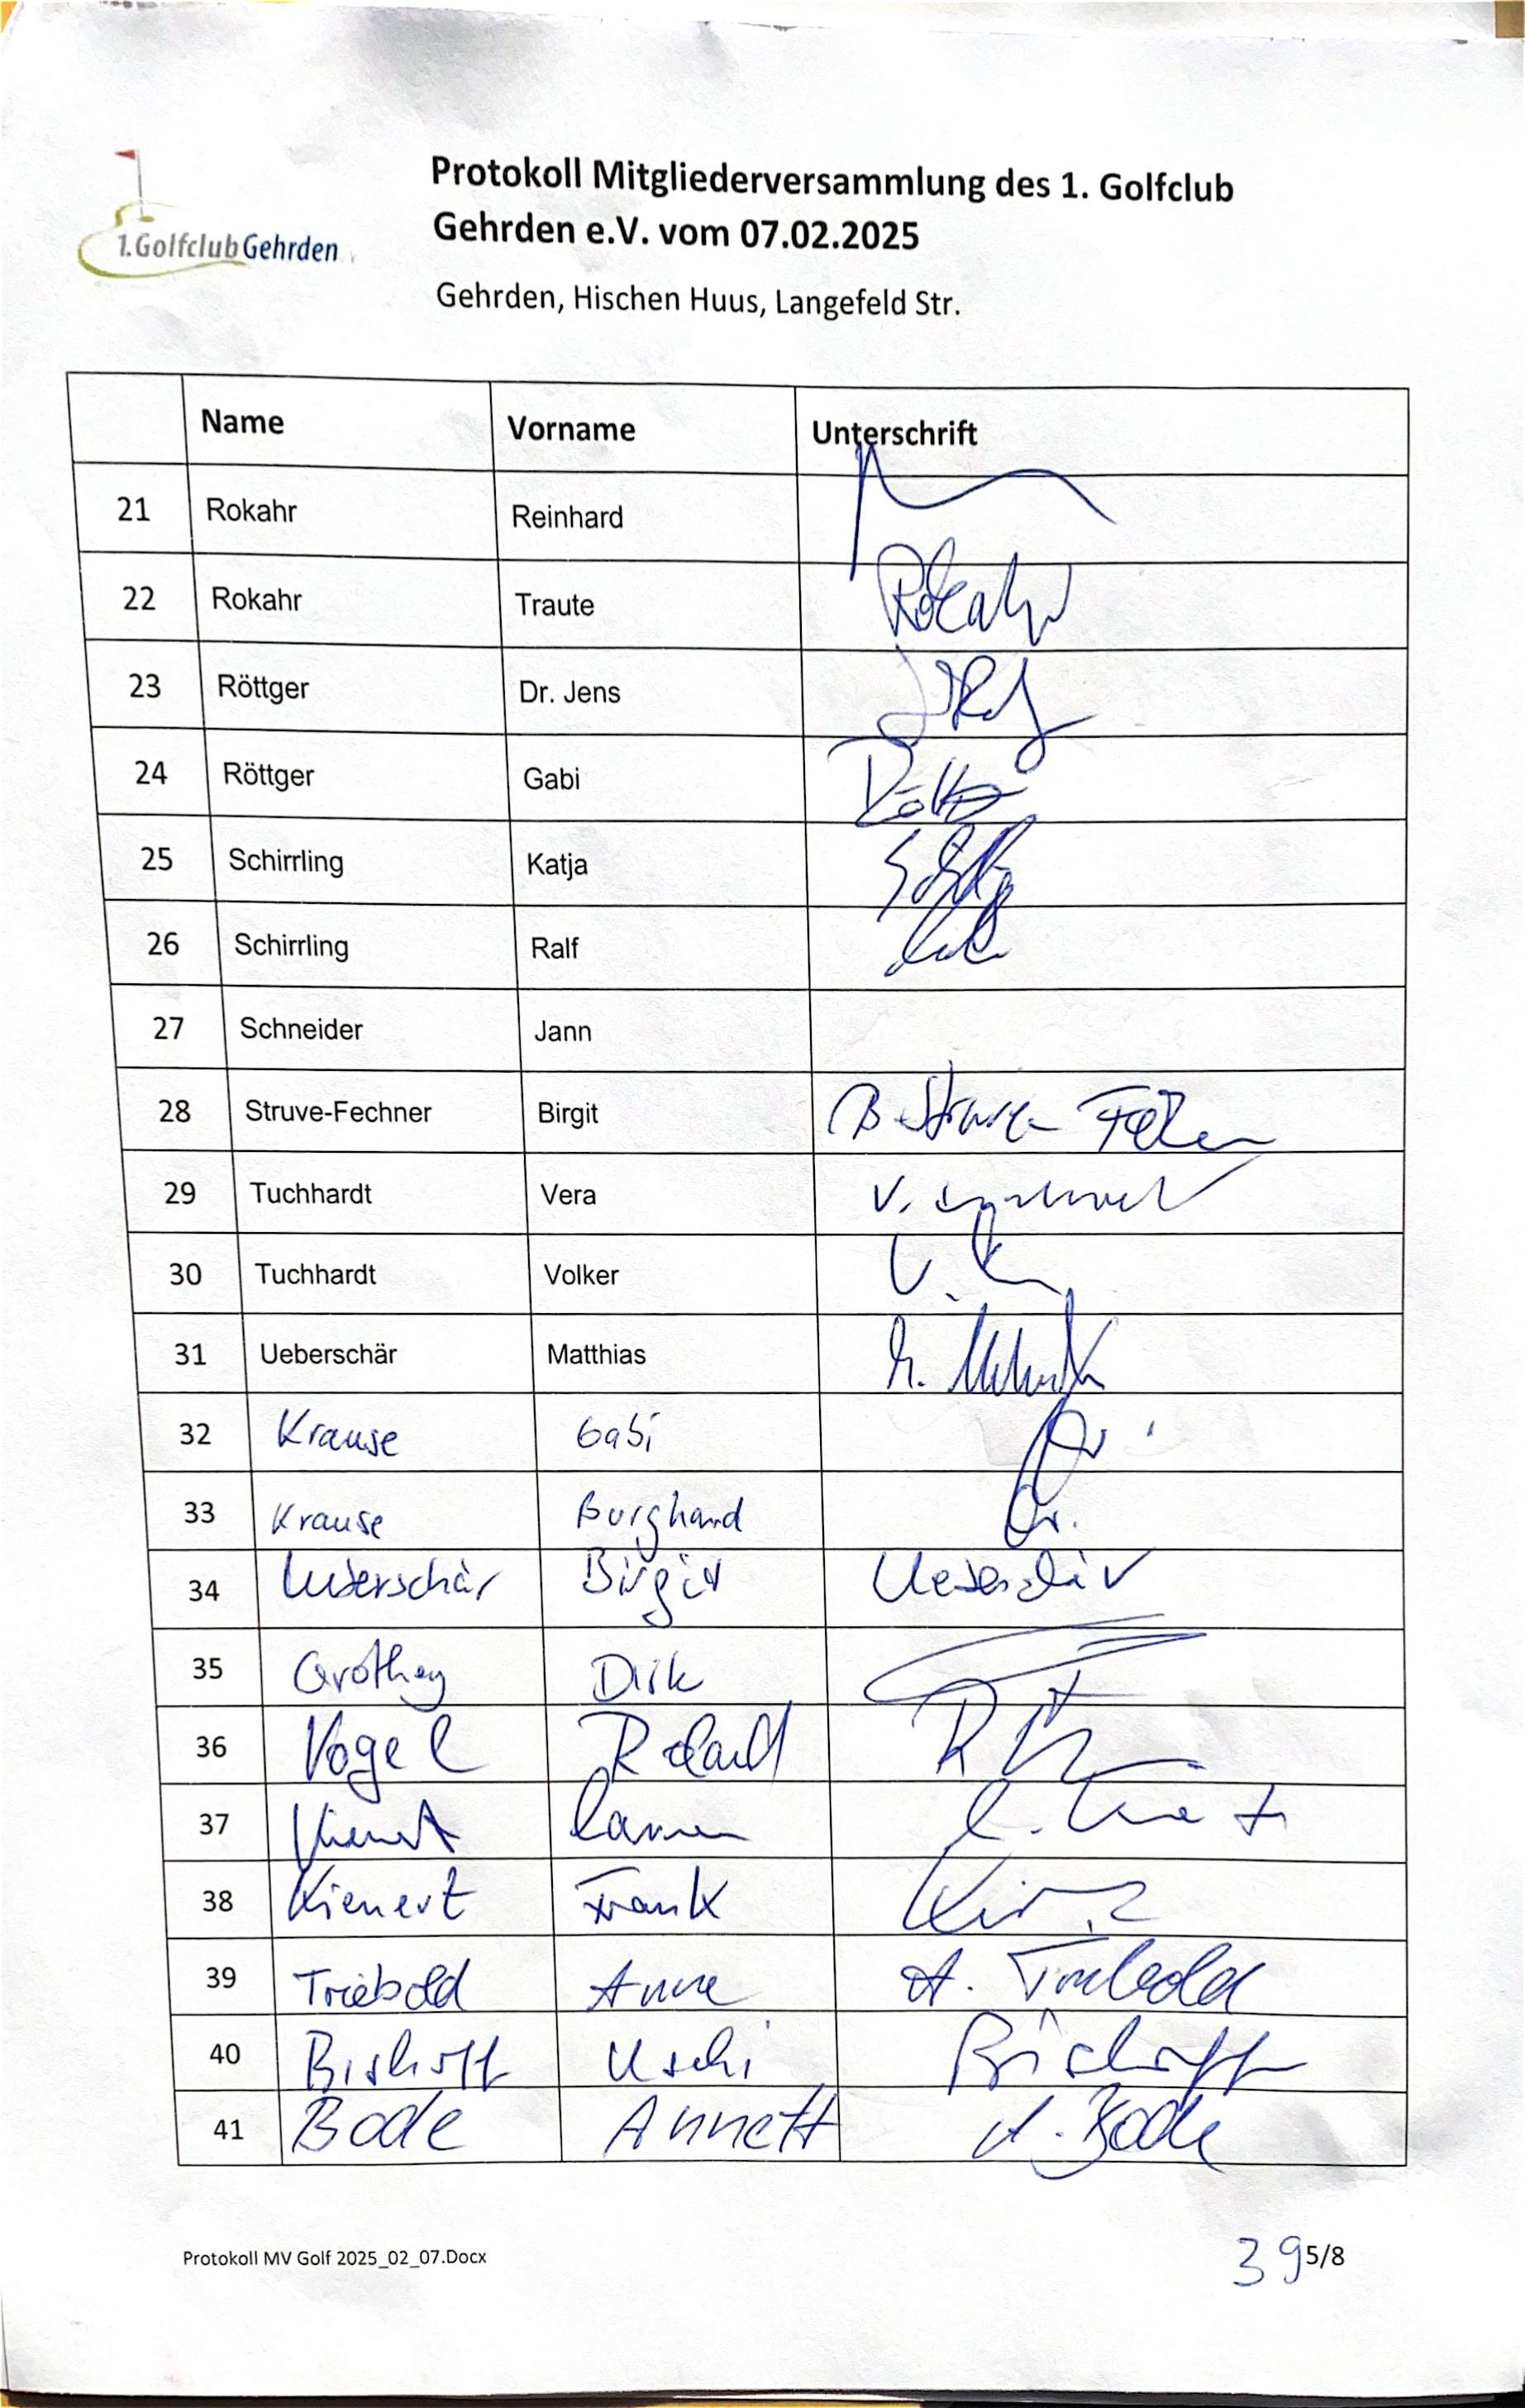 1.GolfclubGehrden
Protokoll Mitgliederversammlung des 1. Golfclub
Gehrden e.V. vom 07.02.2025
Gehrden, Hischen Huus, Langefeld Str.
Name Vorname Unterschrift
21 Rokahr Reinhard
22 Rokahr Traute Rokahr
23 Röttger Dr. Jens
24 Röttger Gabi
25 Schirrling Katja
26 Schirrling Ralf
27 Schneider Jann
28 Struve-Fechner Birgit B. Struve-
29 Tuchhardt Vera V.
30 Tuchhardt Volker V.
31 Ueberschär Matthias
32 Krause Gabi
33 Krause Burghard
34 Ueberschär Birgit Ueberschär
35 Grothey Dirk
36 Vogel Roland
37 Kienert Carmen
38 Kienert Frank
39 Triebold Anne A. Triebold
40 Bischoff Uschi Bischoff
41 Bode Annett A. Bode
Protokoll MV Golf 2025_02_07.Docx 39 5/8